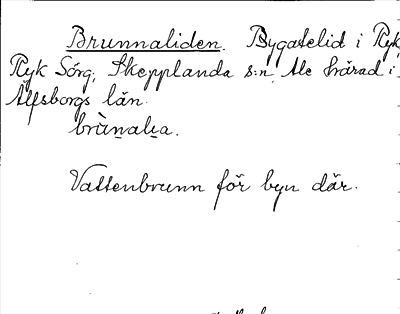 Brunnaliden. Bygatelid i Ryk,
Ryk Sörg, Skepplanda s:n, Ale härad i
Älfsborgs län.
brùnalıa.
Vattenbrunn för byn där.